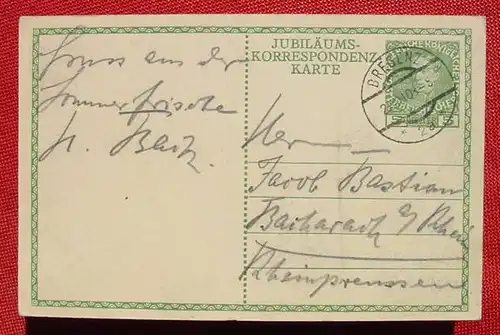 Gruss aus der
Sommerfrische
JUBILÄUMS-
KORRESPONDENZ-
KARTE
BREGENZ
5
Herrn
Jacob Bastian
Bacharach a/ Rhein
Rheinpreussen